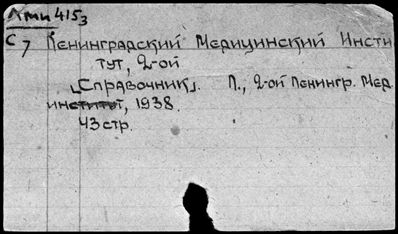 Лми 4153
С7 Ленинградский Медицинский Инсти
тут, 2-ой
[Справочник]. Л., 2-ой Ленингр. Мед.
институт, 1938.
43 стр.